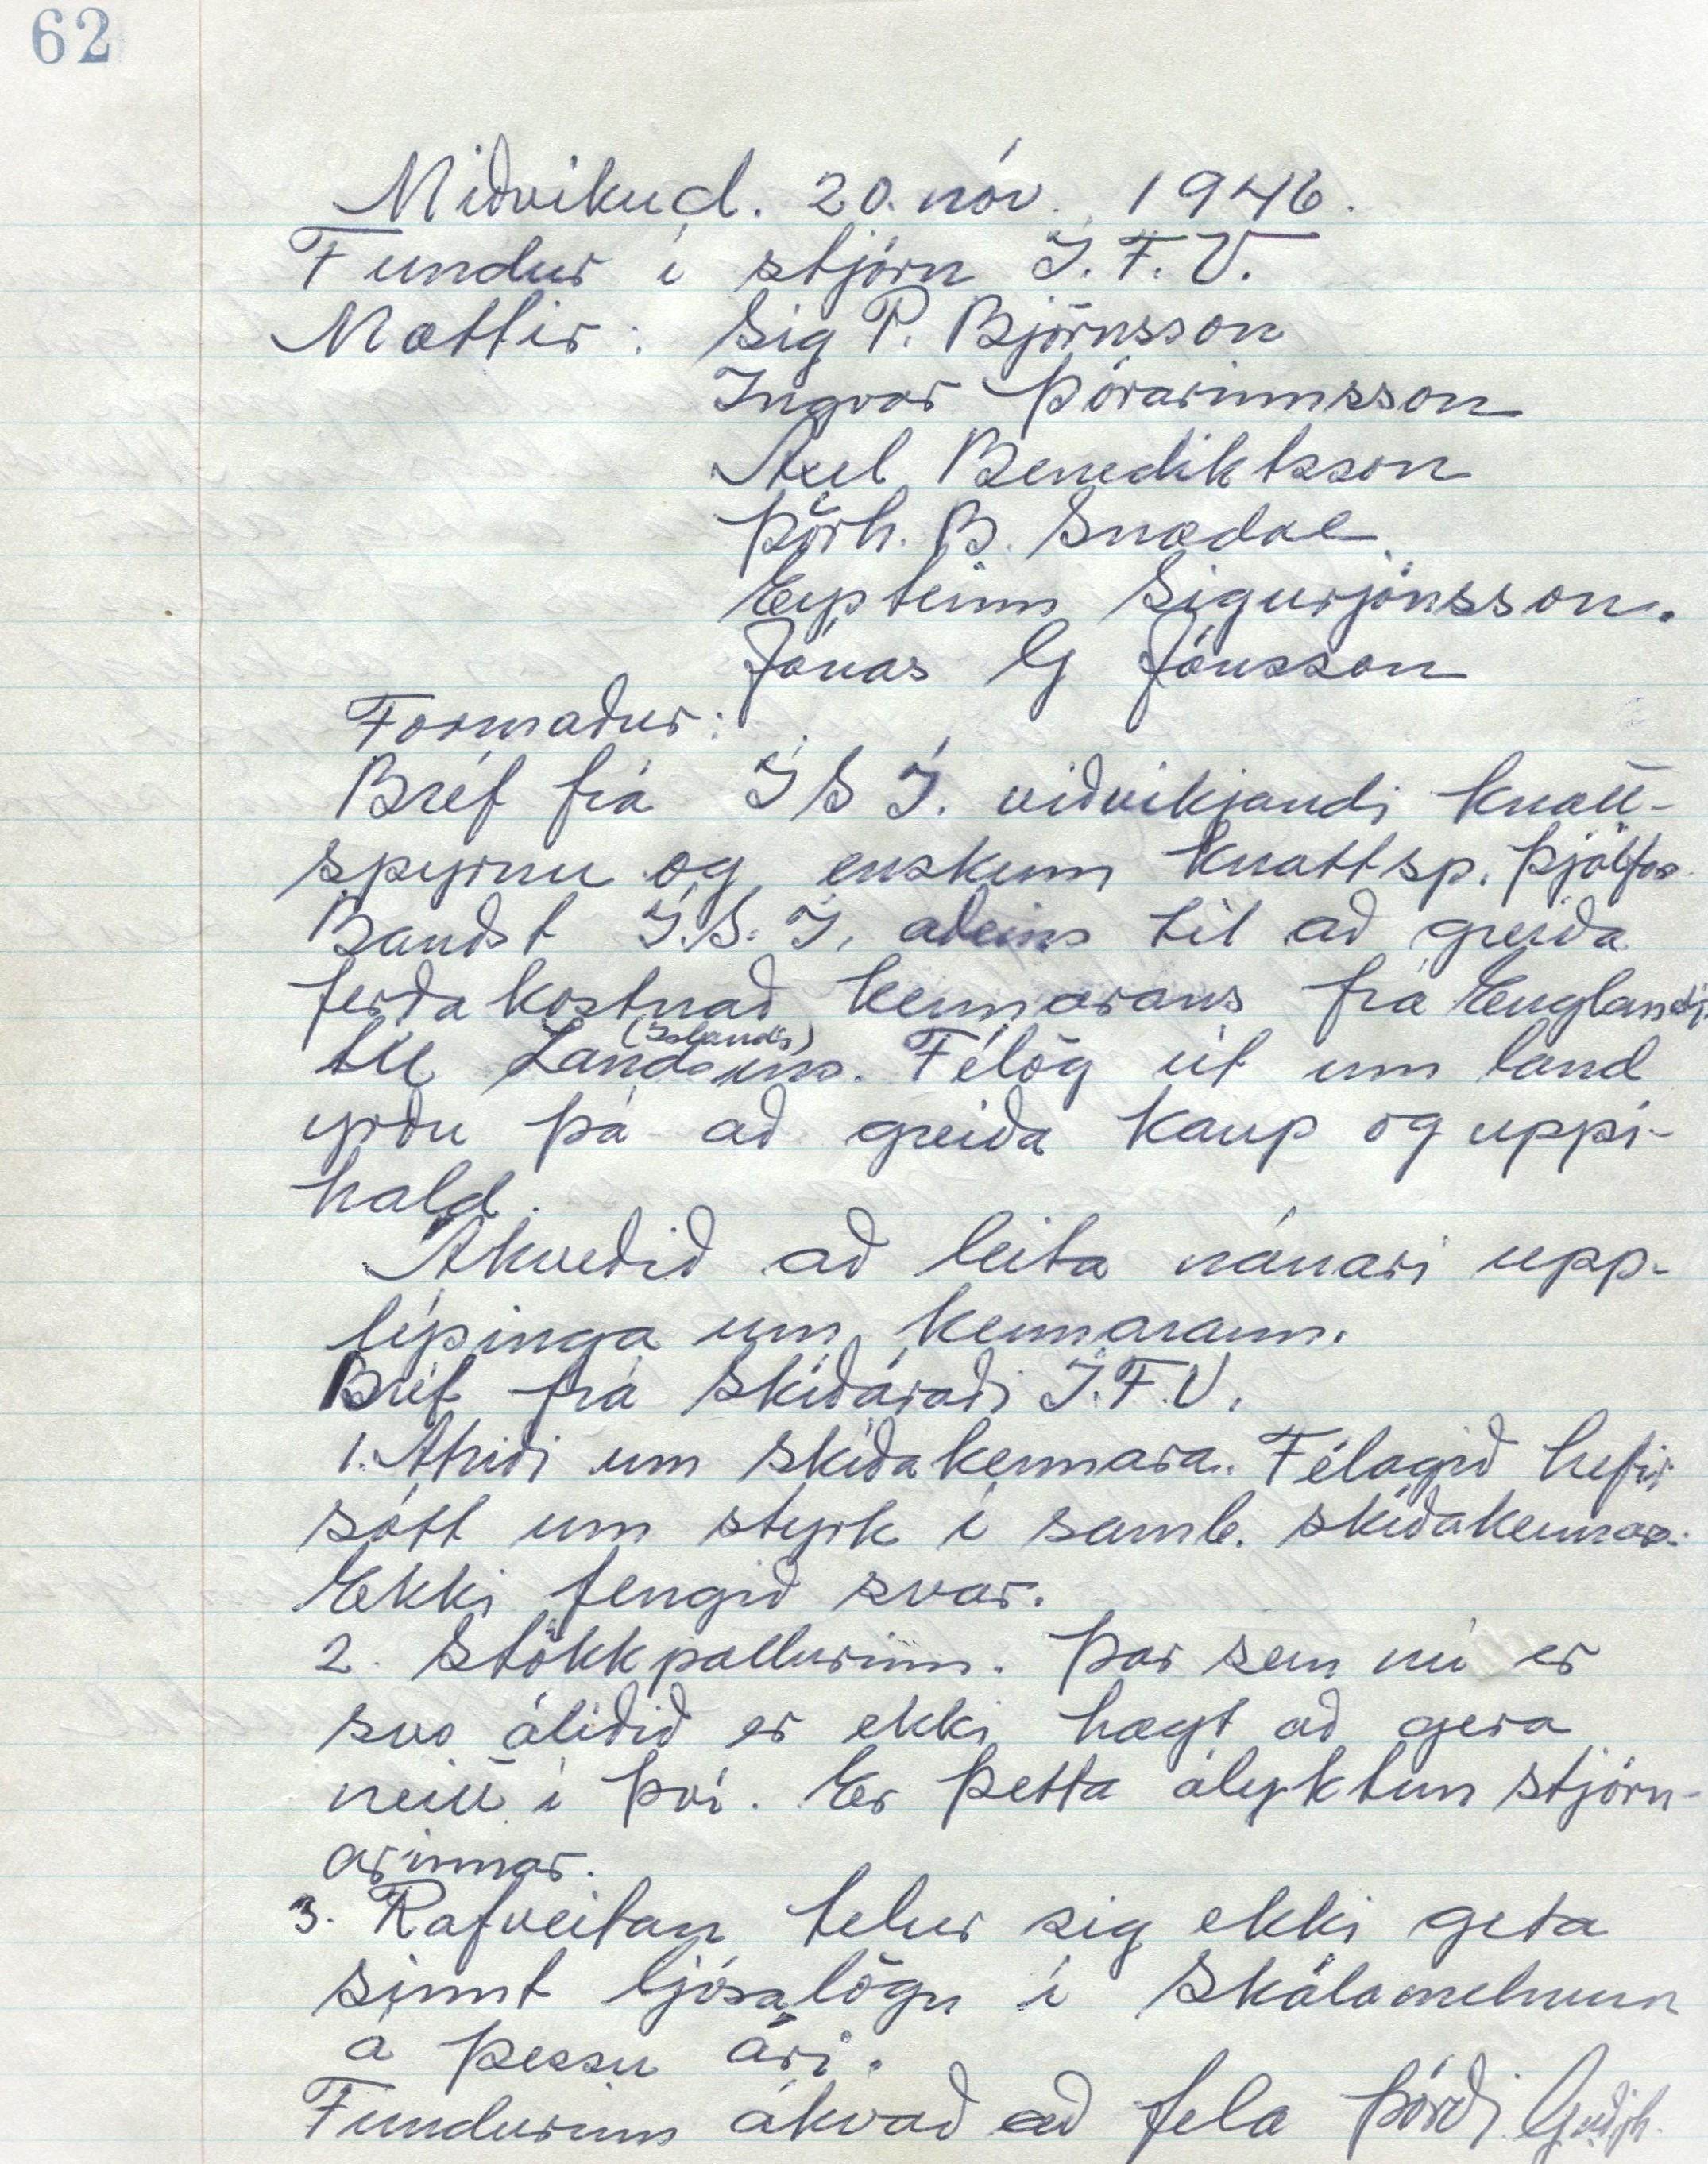 62
Miðvikud. 20. nóv. 1946.
Fundur í stjórn Í.F.V.
Mættir: Sig P. Björnsson
Ingvar Þórarinnsson
Axel Benediktsson
Þórh. B. Snædal
Eysteinn Sigurjónsson.
Jónas G Jónsson
Formaður:
Bréf frá ÍSÍ. viðvíkjandi knatt-
spyrnu og enskum knattsp. þjálfar
Bauðst Í.S.Í. aðeins til að greiða
ferðakostnað kennarans frá Englandi
til Landsins. (Íslands) Félög út um land
yrðu þá að greiða kaup og uppi-
hald.
Ákveðið að leita nánari upp-
lýsinga um kennarann.
Bréf frá Skíðaráði Í.F.V.
1. Atriði um skíðakennara. Félagið hefir
sótt um styrk í samb. skíðakennar.
Ekki fengið svar.
2. Stökkpallurinn. Þar sem nú er
svo áliðið er ekki hægt að gera
neitt í því. Er þetta ályktun stjórn-
arinnar.
3. Rafveitan telur sig ekki geta
sinnt ljósalögn í Skálamelnum
á þessu ári.
Fundurinn ákvað að fela Þórði Guðjh.